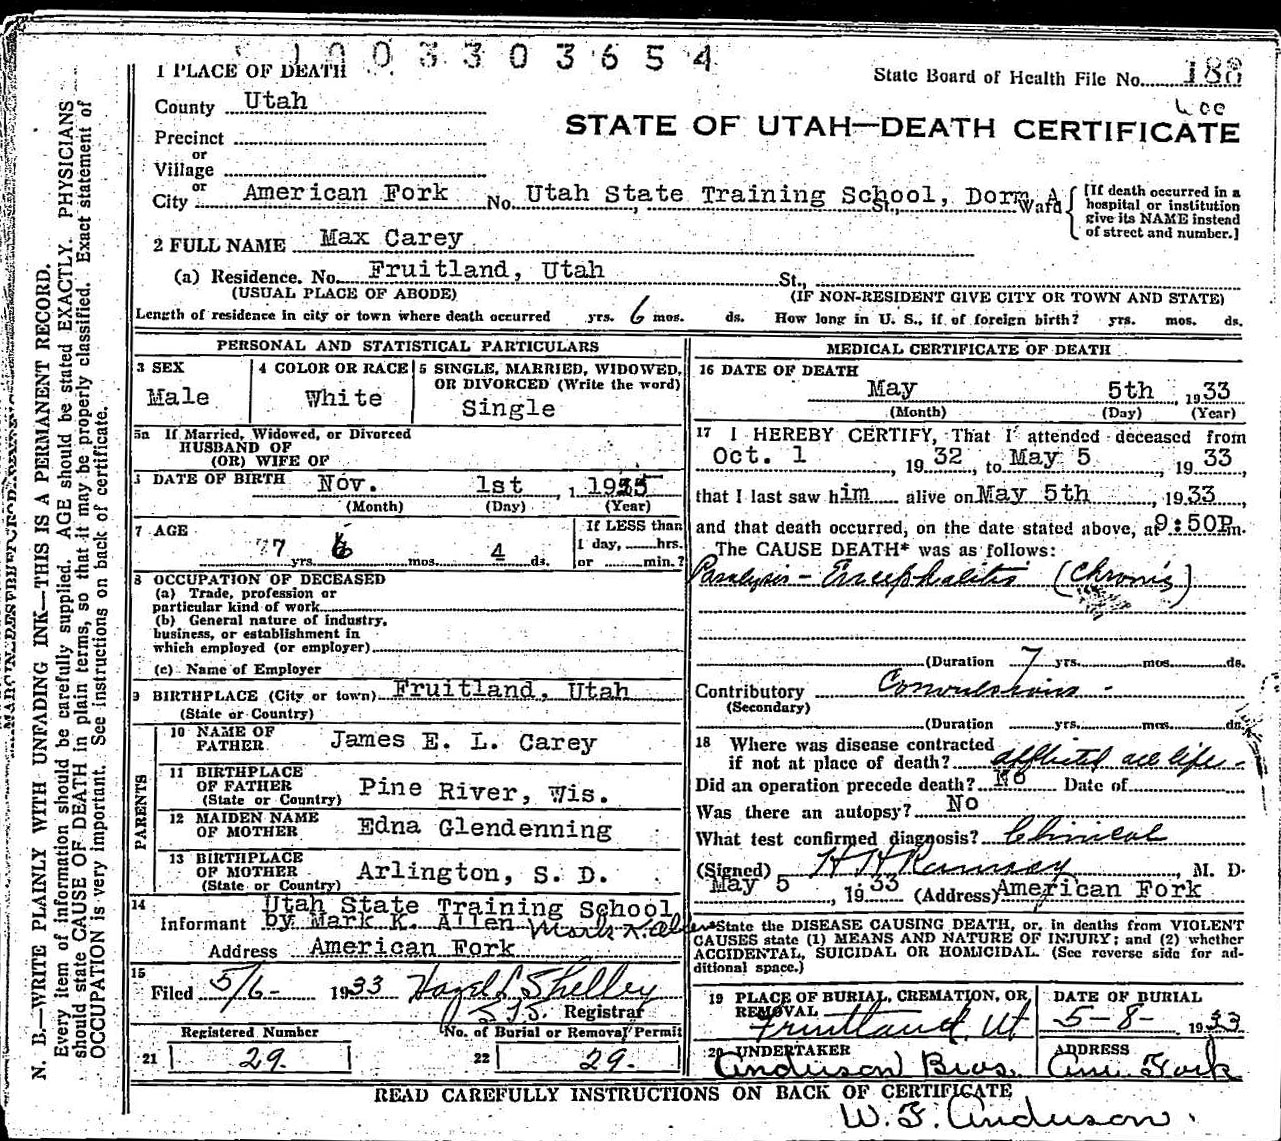 1003303654
1 PLACE OF DEATH
State Board of Health File No. 188
County Utah
STATE OF UTAH—DEATH CERTIFICATE
Precinct
or
Village
or
City American Fork No. Utah State Training School, Dorm A St., Ward
[If death occurred in a hospital or institution give its NAME instead of street and number.]
2 FULL NAME Max Carey
(a) Residence. No. Fruitland, Utah St.,
(USUAL PLACE OF ABODE) (IF NON-RESIDENT GIVE CITY OR TOWN AND STATE)
Length of residence in city or town where death occurred yrs. 6 mos. ds. How long in U. S., if of foreign birth? yrs. mos. ds.
PERSONAL AND STATISTICAL PARTICULARS
3 SEX
Male
4 COLOR OR RACE
White
5 SINGLE, MARRIED, WIDOWED, OR DIVORCED (Write the word)
Single
5a If Married, Widowed, or Divorced
HUSBAND OF
(OR) WIFE OF
DATE OF BIRTH Nov. 1st, 1925
(Month) (Day) (Year)
7 AGE
7 yrs. 6 mos. 4 ds.
If LESS than
1 day, hrs.
or min.?
8 OCCUPATION OF DECEASED
(a) Trade, profession or
particular kind of work
(b) General nature of industry,
business, or establishment in
which employed (or employer)
(c) Name of Employer
9 BIRTHPLACE (City or town) Fruitland, Utah
(State or Country)
PARENTS
10 NAME OF FATHER James E. L. Carey
11 BIRTHPLACE OF FATHER (State or Country) Pine River, Wis.
12 MAIDEN NAME OF MOTHER Edna Glendenning
13 BIRTHPLACE OF MOTHER (State or Country) Arlington, S. D.
14
Informant Utah State Training School
by Mark K. Allen Mark K. Allen
Address American Fork
15
Filed 5/6- 1933 Hazel L Shelley
Registrar
Registered Number
21 29.
No. of Burial or Removal Permit
22 29.
MEDICAL CERTIFICATE OF DEATH
16 DATE OF DEATH
May 5th, 1933
(Month) (Day) (Year)
17 I HEREBY CERTIFY, That I attended deceased from
Oct. 1, 1932, to May 5, 1933,
that I last saw him alive on May 5th, 1933,
and that death occurred, on the date stated above, at 9:50P m.
The CAUSE DEATH* was as follows:
Paralysis - Encephalitis (Chronic)
(Duration 7 yrs. mos. ds.
Contributory Convulsions -
(Secondary)
(Duration yrs. mos. ds.
18 Where was disease contracted
if not at place of death? afflicted all life -
Did an operation precede death? No Date of
Was there an autopsy? No
What test confirmed diagnosis? Clinical
(Signed) H H Ramsay, M. D.
May 5, 1933 (Address) American Fork
*State the DISEASE CAUSING DEATH, or, in deaths from VIOLENT
CAUSES state (1) MEANS AND NATURE OF INJURY; and (2) whether
ACCIDENTAL, SUICIDAL OR HOMICIDAL. (See reverse side for ad-
ditional space.)
19 PLACE OF BURIAL, CREMATION, OR REMOVAL
Fruitland, Ut
DATE OF BURIAL
5-8- 1933
20 UNDERTAKER
Anderson Bros.
ADDRESS
Am. Fork
READ CAREFULLY INSTRUCTIONS ON BACK OF CERTIFICATE
W. F. Anderson.
N. B.—WRITE PLAINLY WITH UNFADING INK—THIS IS A PERMANENT RECORD.
Every item of information should be carefully supplied. AGE should be stated EXACTLY. PHYSICIANS
should state CAUSE OF DEATH in plain terms, so that it may be properly classified. Exact statement of
OCCUPATION is very important. See instructions on back of certificate.